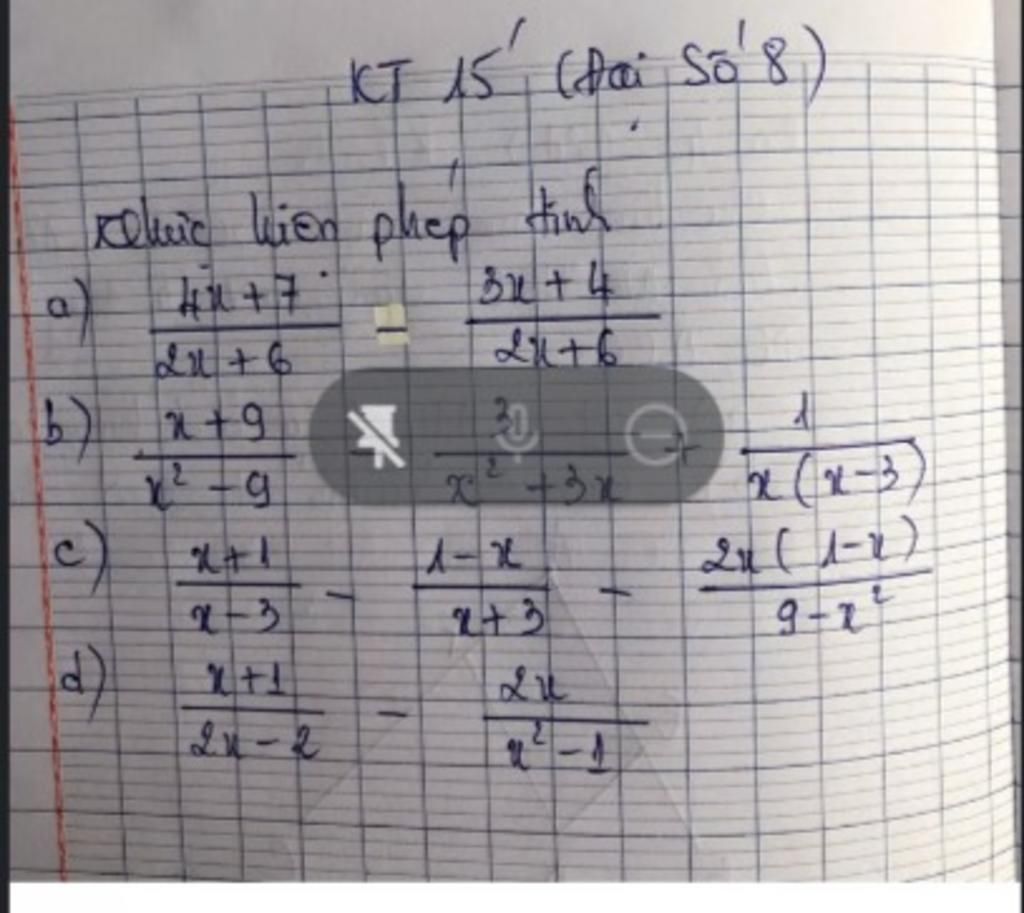 KT 15' (Đại Số 8)
Thực hiện phép tính
a) (4x+7)/(2x+6) - (3x+4)/(2x+6)
b) (x+9)/(x²-9) - 3/(x²+3x) + 1/(x(x-3))
c) (x+1)/(x-3) - (1-x)/(x+3) - (2x(1-x))/(9-x²)
d) (x+1)/(2x-2) - 2x/(x²-1)